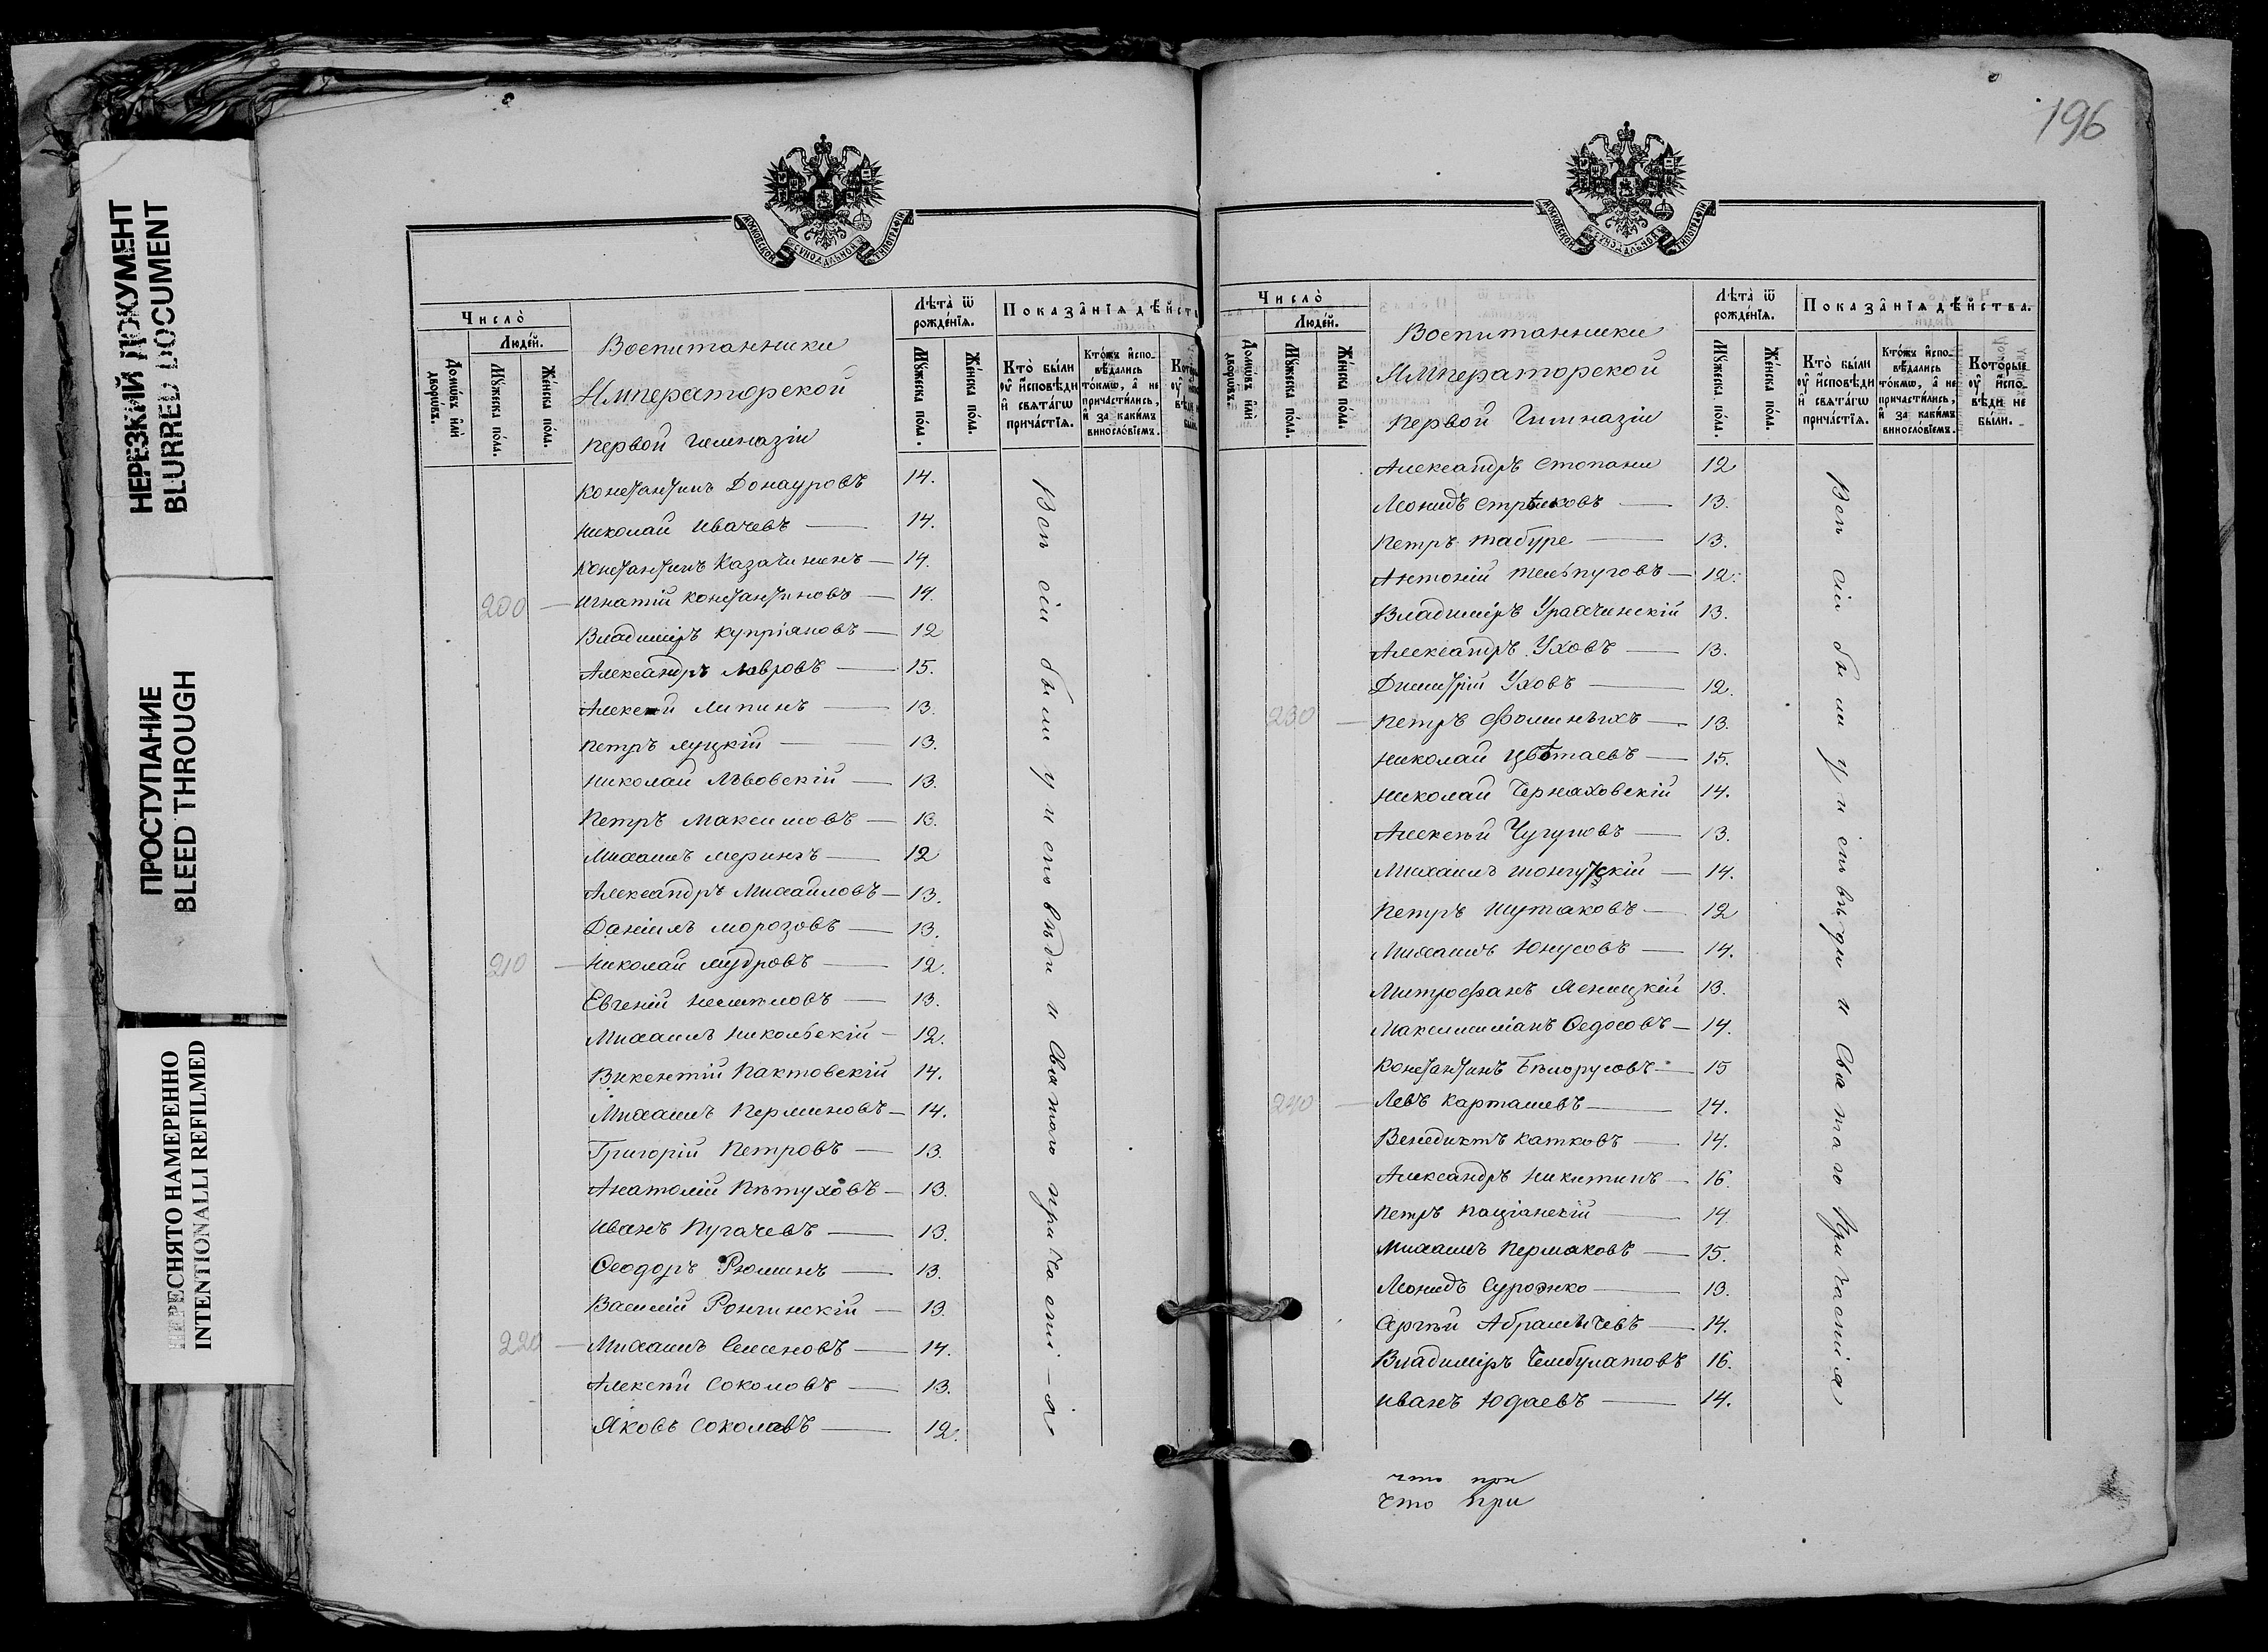 НЕРЕЗКИЙ ДОКУМЕНТ
BLURRED DOCUMENT
ПРОСТУПАНИЕ
BLEED THROUGH
ПЕРЕСНЯТО НАМЕРЕННО
INTENTIONALLI REFILMED
МОСКОВСКОЙ СѴНОДАЛЬНОЙ ТИПОГРАФІИ
Число̀
Люде́й.
Домѡ́въ и҆лѝ дворѡ́въ.
Мꙋ́жеска по́ла.
Же́нска по́ла.
Воспитанники
Императорской
первой гимназіи
Лѣ́та ѿ рожде́нїѧ.
Мꙋ́жеска по́ла.
Же́нска по́ла.
Показа̑нїѧ дѣ́йст
Кто̀ бы́ли ᲂу҆ и҆сповѣди и҆ свѧта́гѡ прича́стїѧ.
Кто́жъ и҆спо-
вѣ́дались то́кмѡ, а҆ не причасти́лись, и҆ за каки́мъ винослόвїемъ.
Константинъ Донауровъ 14.
Николай Ивачевъ — 14.
Константинъ Казачининъ — 14.
200 — Игнатій Константиновъ — 14.
Владиміръ Купріяновъ — 12
Александръ Лавровъ — 15.
Алексѣй Липинъ — 13.
Петръ Луцкій — 13.
Николай Львовскій — 13.
Петръ Максимовъ — 13.
Михаилъ Мерингъ — 12
Александръ Михайловъ — 13.
Даніилъ Морозовъ — 13.
210 — Николай Мудровъ — 12.
Евгеній — 13.
Михаилъ Никольскій — 12.
Викентій Пактовскій 14.
Михаилъ Перминовъ — 14.
Григорій Петровъ — 13.
Анатолій Пѣтуховъ — 13.
Иванъ Пугачевъ — 13.
Ѳеодоръ Рюминъ — 13.
Василій Рончинскій — 13.
220 — Михаилъ Семеновъ — 14.
Алексѣй Соколовъ — 13.
Яковъ Соколовъ — 12.
Всѣ сіи были у исповѣди и Святаго причастія
196
МОСКОВСКОЙ СѴНОДАЛЬНОЙ ТИПОГРАФІИ
Число̀
Люде́й.
Домѡ́въ и҆лѝ дворѡ́въ.
Мꙋ́жеска по́ла.
Же́нска по́ла.
Воспитанники
Императорской
первой Гимназіи
Лѣ́та ѿ рожде́нїѧ.
Мꙋ́жеска по́ла.
Же́нска по́ла.
Показа̑нїѧ дѣ́йства.
Кто̀ бы́ли ᲂу҆ и҆сповѣди и҆ свѧта́гѡ прича́стїѧ.
Кто́жъ и҆спо-
вѣ́дались то́кмѡ, а҆ не причасти́лись, и҆ за каки́мъ винослόвїемъ.
Кото́рые ᲂу҆ и҆спо-
вѣди не бы́ли.
Александръ Стопани 12
Леонидъ Стрѣлковъ — 13.
Петръ Табуре — 13.
Антоній Тельпуговъ — 12.
Владиміръ Урачинскій 13.
Александръ Уховъ — 13.
Димитрій Уховъ — 12.
230 — Петръ Фоминыхъ — 13.
Николай Цвѣтаевъ — 15.
Николай Черняховскій 14.
Алексѣй Чугуновъ — 13.
Михаилъ Шонгутскій — 14.
Петръ Шутаковъ — 12
Михаилъ Юнусовъ — 14.
Митрофанъ Ясницкій 13.
Максимиліанъ Ѳедосовъ — 14.
Константинъ Бѣлорусовъ — 15
240 — Левъ Карташевъ — 14.
Венедиктъ Катковъ — 14.
Александръ Никитинъ — 16.
Петръ — 14
Михаилъ Пермяковъ — 15.
Леонидъ — 13.
Сергѣй Абрамычевъ — 14.
Владиміръ Чембулатовъ 16.
Иванъ Юдаевъ — 14.
Всѣ сіи были у исповѣди и Святаго Причастія
что при
что при